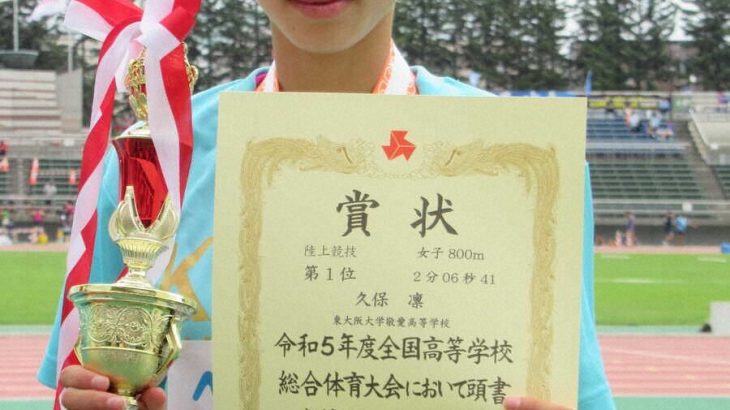 賞状
陸上競技 女子800m
第1位 2分06秒41
久保 凛
東大阪大学敬愛高等学校
令和5年度全国高等学校
総合体育大会において頭書